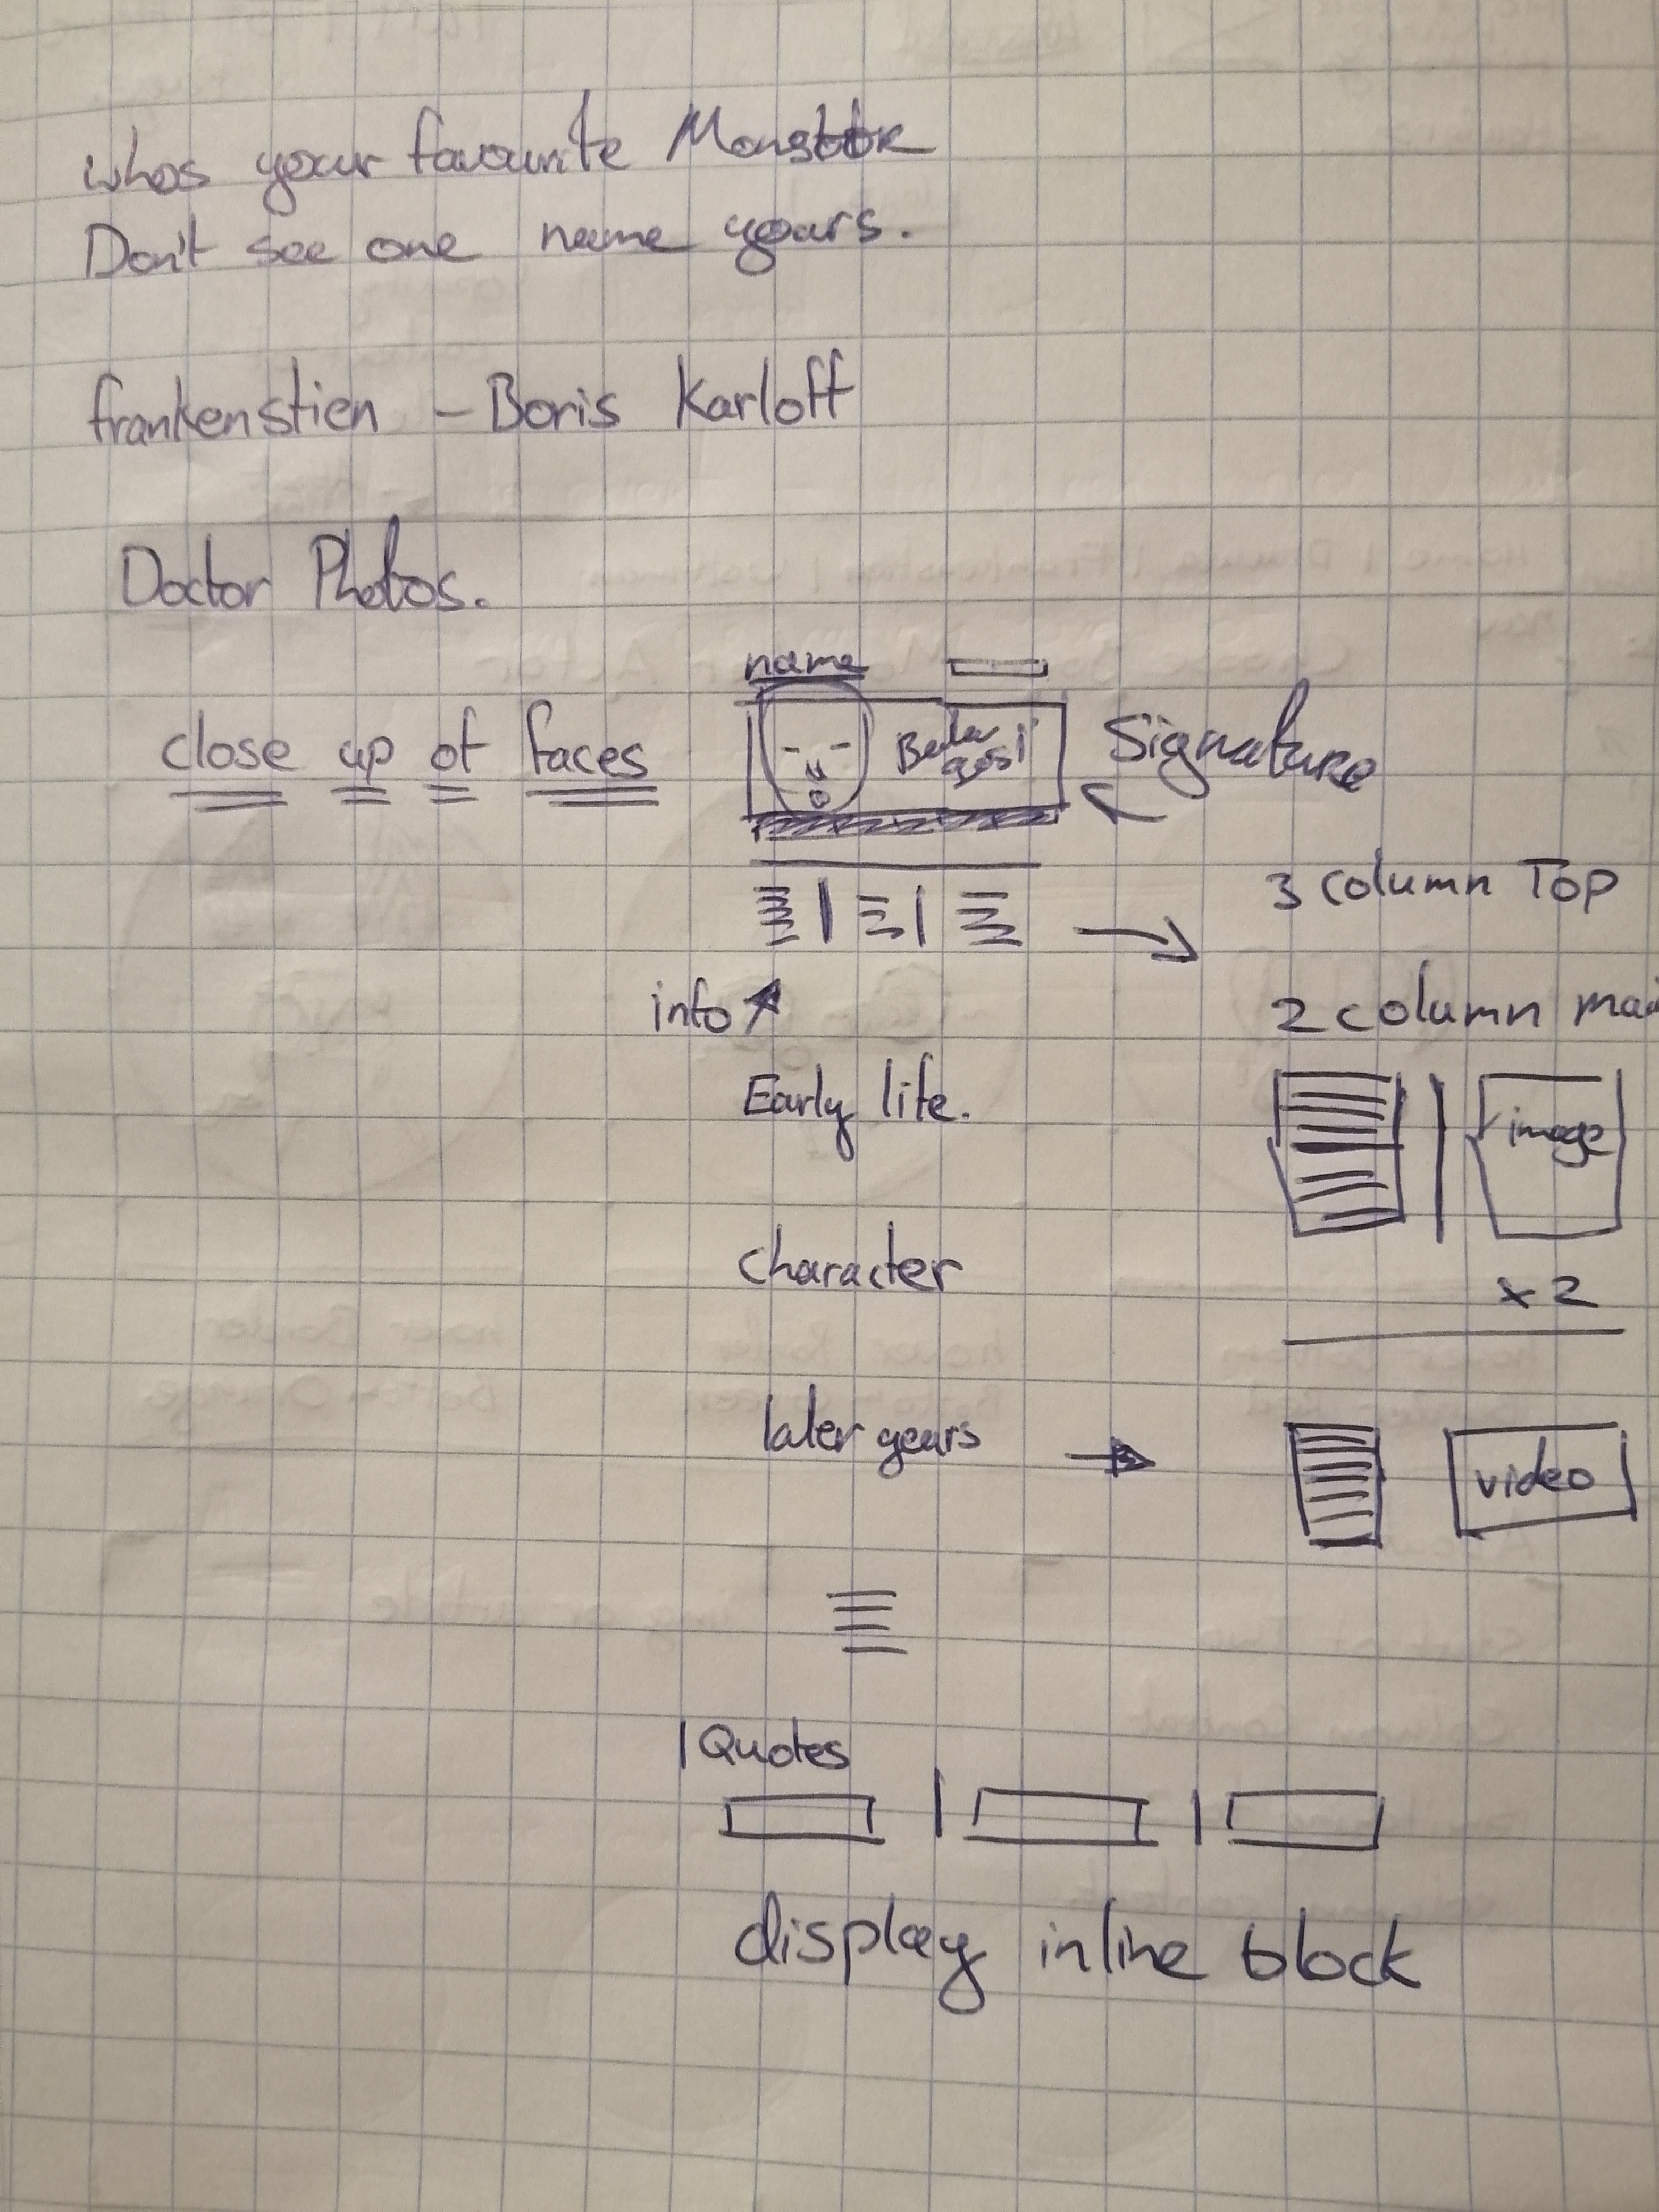 whos your favourite Monster
Don't see one name yours.
frankenstien - Boris Karloff
Doctor Photos.
name
close up of faces
Bela
Signature
3 column Top
info
2 column
Early life.
image
character
x 2
later years
video
Quotes
display inline block